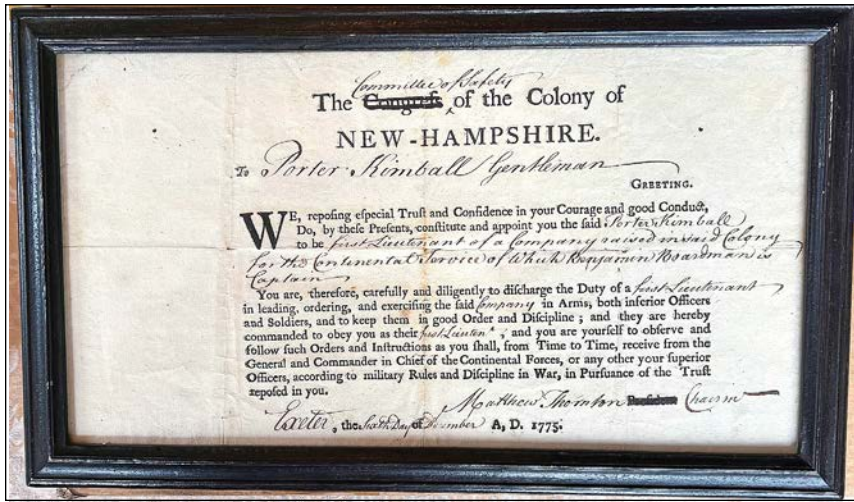 Committee of Safety
The Congreſs ‸ of the Colony of
NEW-HAMPSHIRE.
To Porter Kimball Gentleman
GREETING.
WE, repoſing eſpecial Truſt and Confidence in your Courage and good Conduct,
Do, by theſe Preſents, conſtitute and appoint you the ſaid Porter Kimball
to be first Lieutenant of a Company raised in said Colony
for the Continental Service of Which Benjamin Boardman is
Captain
You are, therefore, carefully and diligently to diſcharge the Duty of a first Lieutenant
in leading, ordering, and exerciſing the ſaid Company in Arms, both inferior Officers
and Soldiers, and to keep them in good Order and Diſcipline; and they are hereby
commanded to obey you as their first Lieutent ; and you are yourſelf to obſerve and
follow ſuch Orders and Inſtructions as you ſhall, from Time to Time, receive from the
General and Commander in Chief of the Continental Forces, or any other your ſuperior
Officers, according to military Rules and Diſcipline in War, in Purſuance of the Truſt
repoſed in you.
Matthew Thornton Preſident Chairm
Exeter, the Sixth Day of December A, D. 1775.